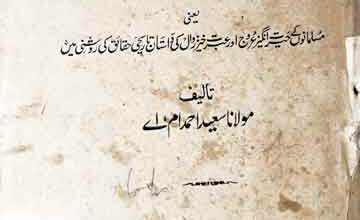 یعنی
مسلمانوں کے حیرت انگیز عروج اور عبرت خیز زوال کی داستان تاریخی حقائق کی روشنی میں
تالیف
مولانا سعید احمد ام، اے